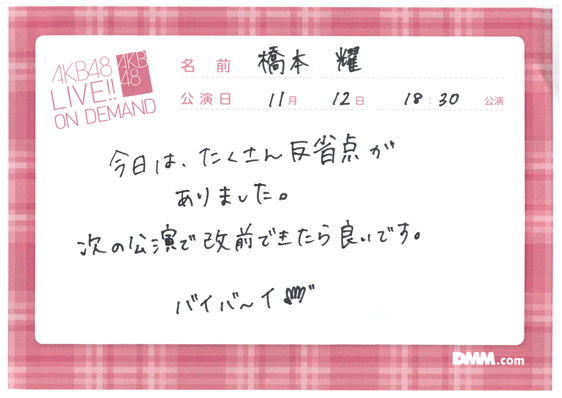 AKB48
LIVE!!
ON DEMAND
AKB
48
名前 橋本 耀
公演日 11月 12日 18:30 公演
今日は、たくさん反省点が
ありました。
次の公演で改前できたら良いです。
バイバ〜イ
DMM.com